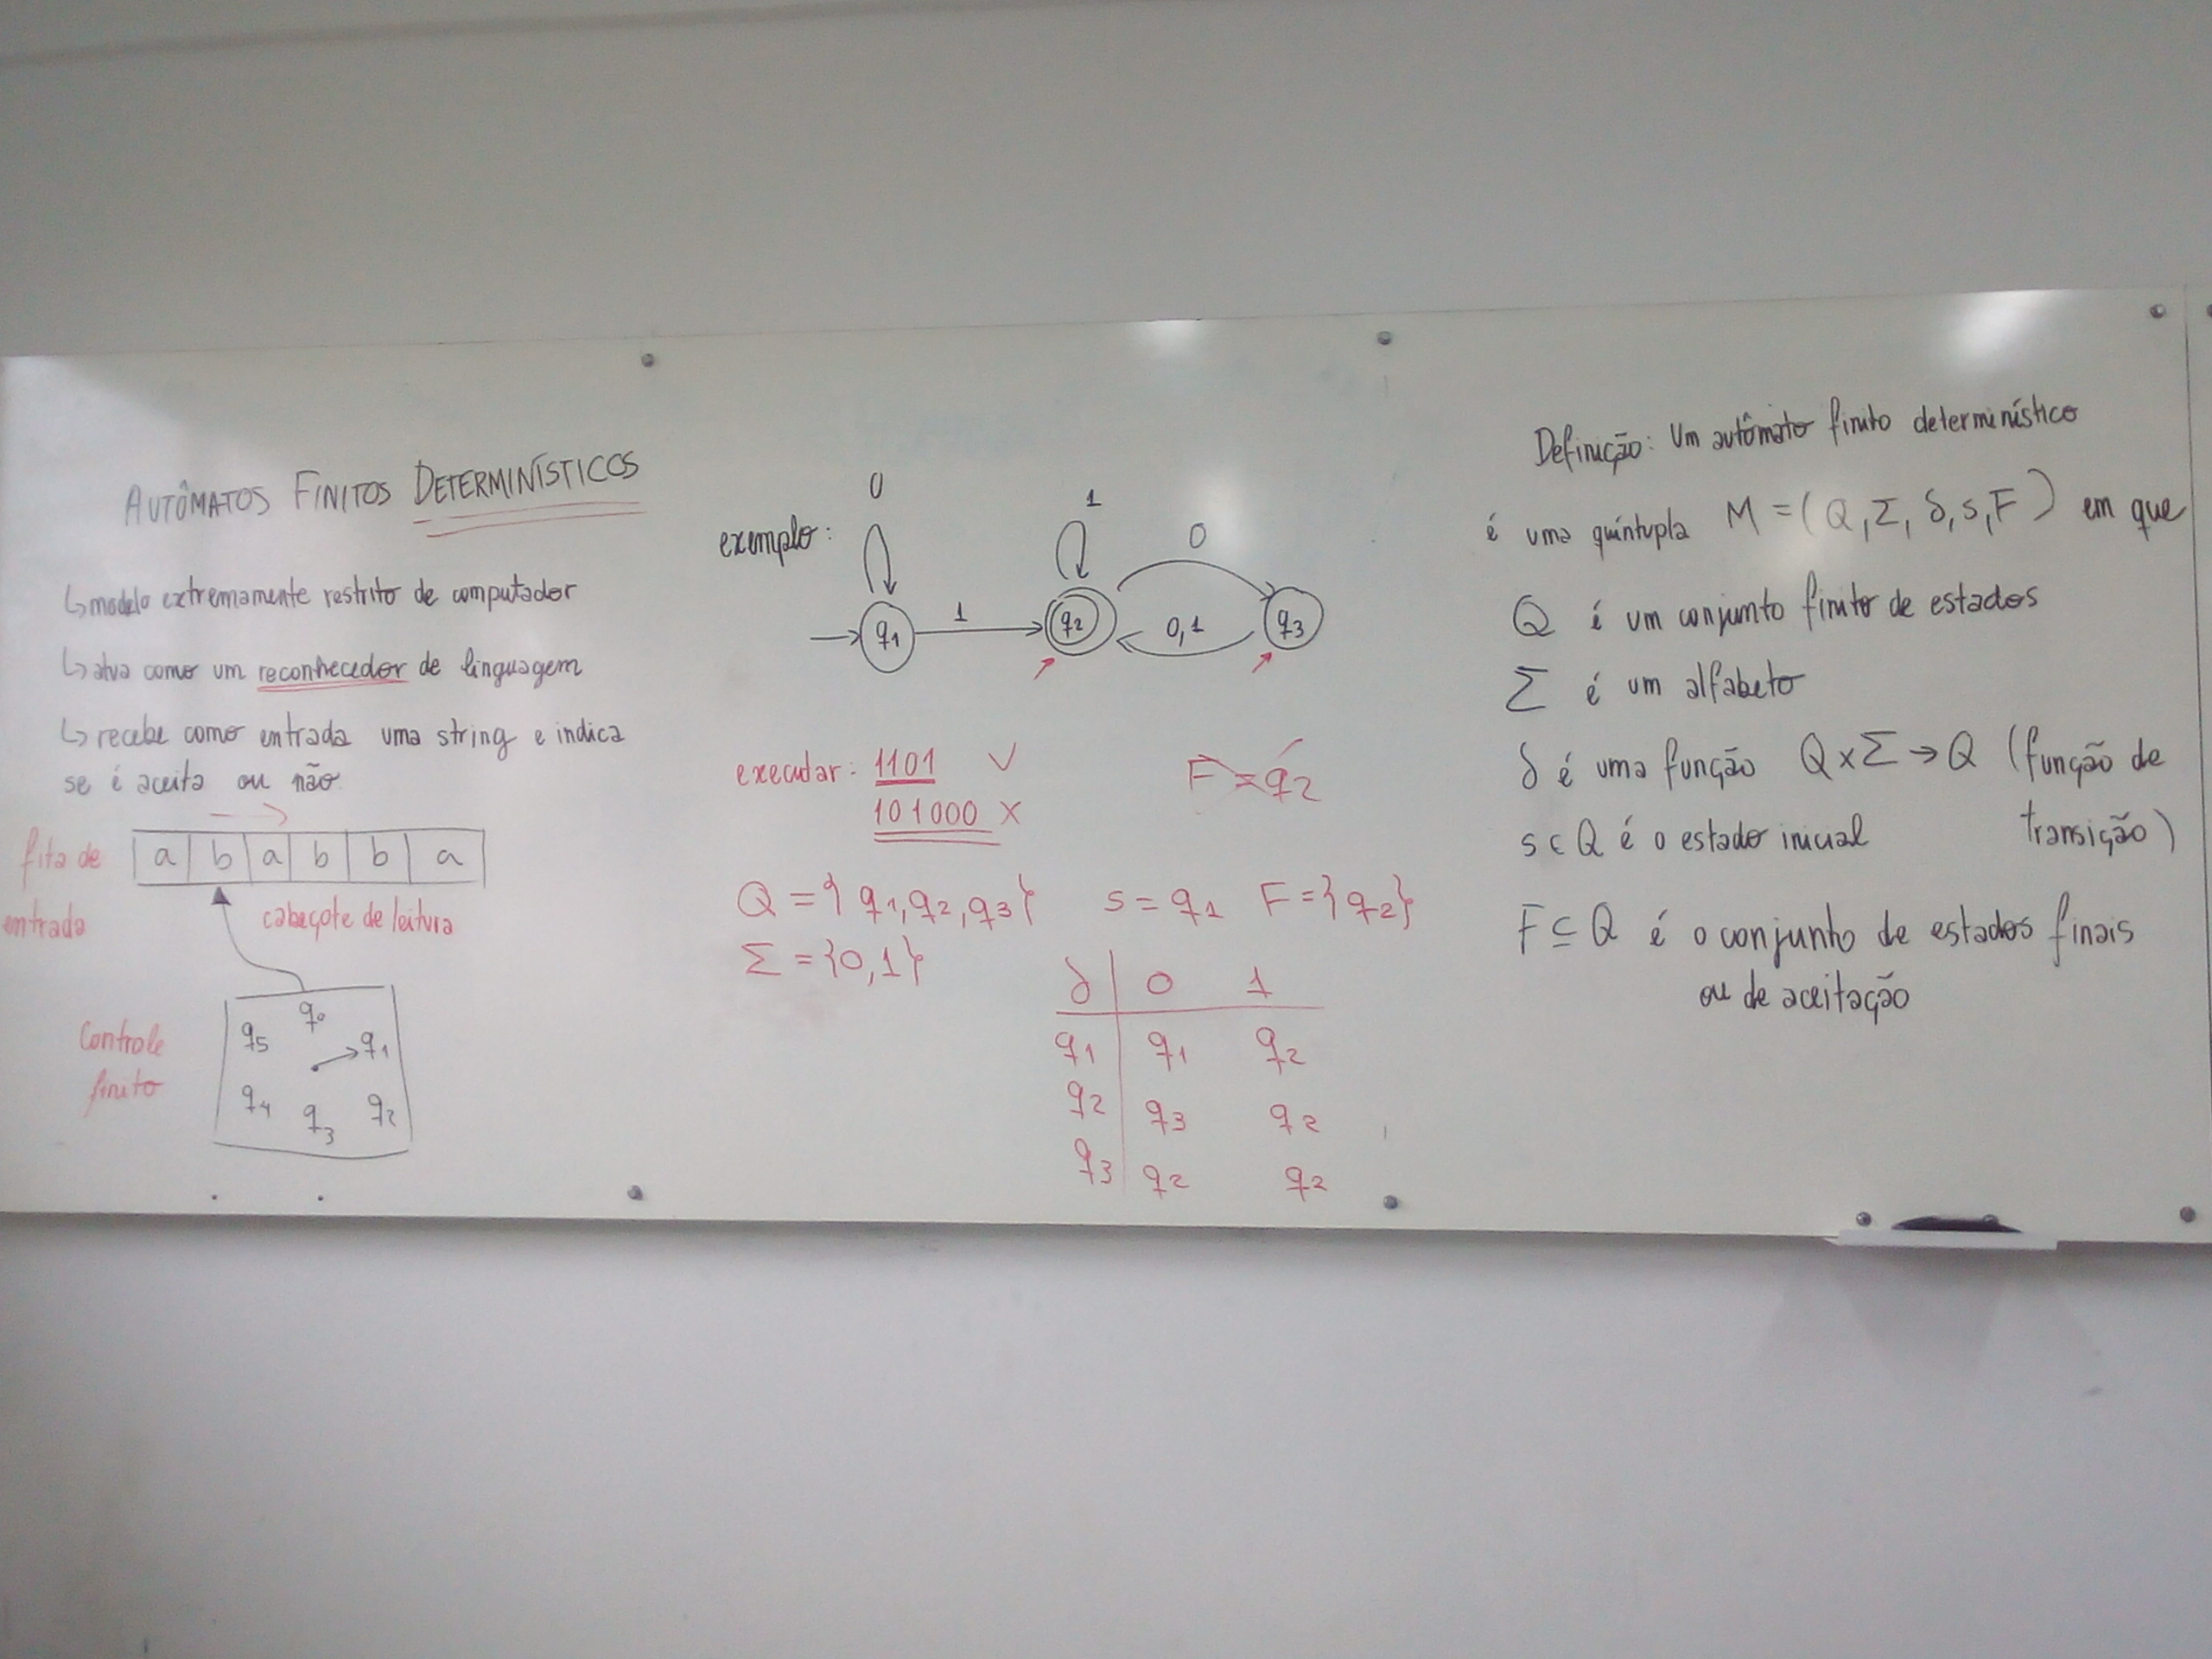 AUTÔMATOS FINITOS DETERMINÍSTICOS
↳ modelo extremamente restrito de computador
↳ atua como um reconhecedor de linguagem
↳ recebe como entrada uma string e indica
se é aceita ou não
fita de
entrada
a b a b b a
cabeçote de leitura
Controle
finito
q0
q5
q1
q4
q3
q2
exemplo:
0
1
0
1
0,1
q1
q2
q3
executar: 1101 ✓
101000 X
F = q2
Q = { q1, q2, q3 } s = q1 F = {q2}
Σ = {0,1}
δ 0 1
q1 q1 q2
q2 q3 q2
q3 q2 q2
Definição: Um autômato finito determinístico
é uma quíntupla M = (Q, Σ, δ, s, F) em que
Q é um conjunto finito de estados
Σ é um alfabeto
δ é uma função Q × Σ → Q (função de
transição)
s ∈ Q é o estado inicial
F ⊆ Q é o conjunto de estados finais
ou de aceitação